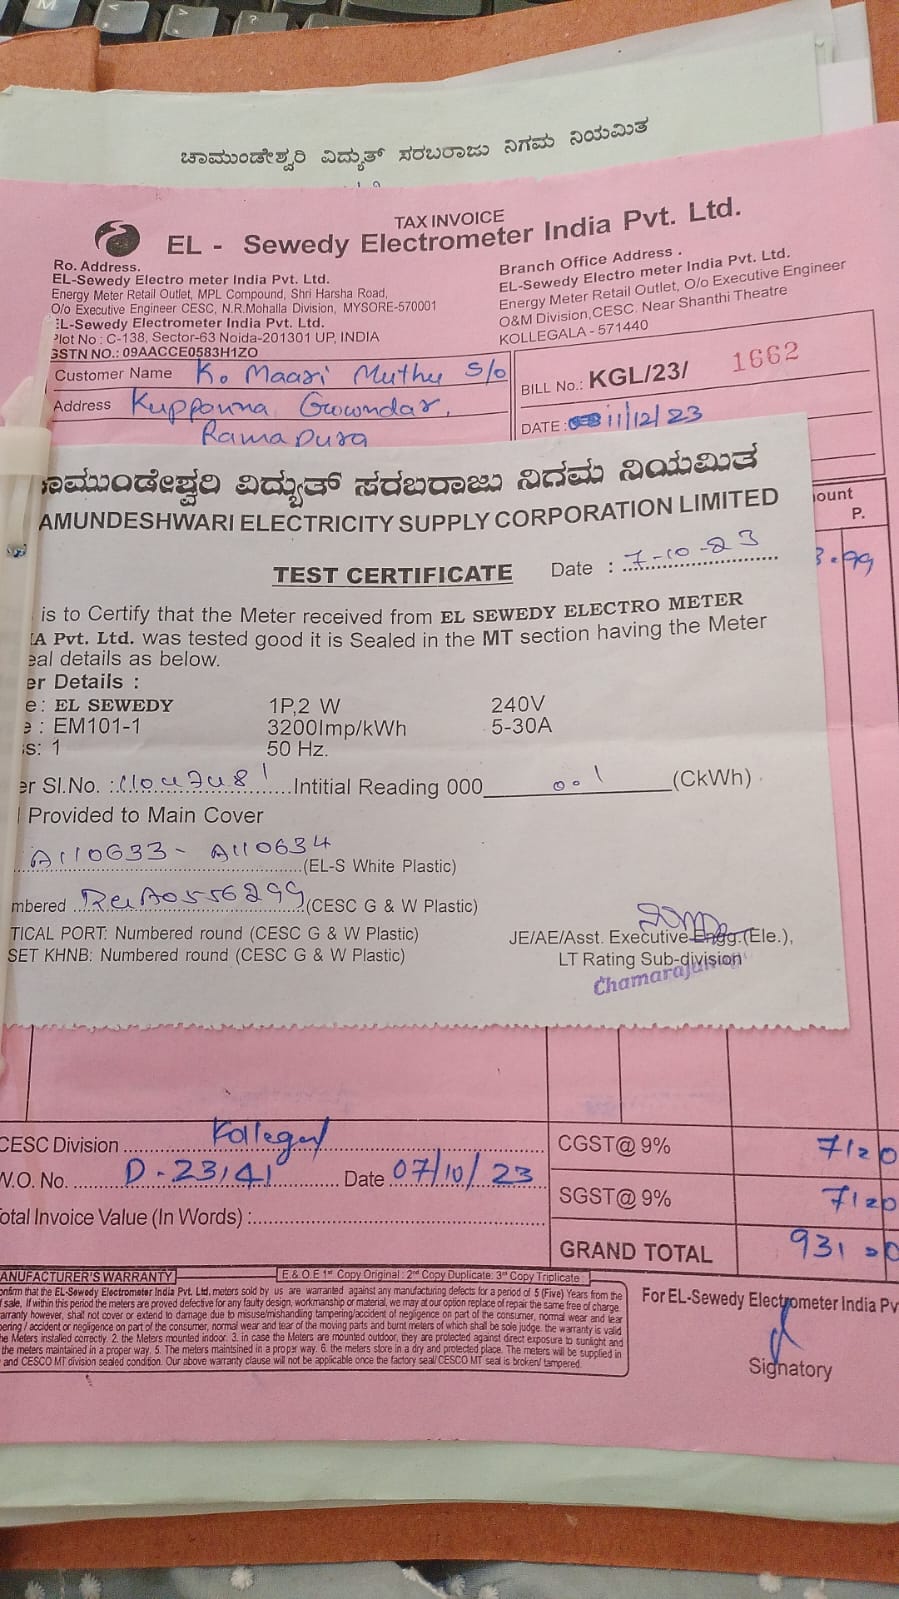 ಚಾಮುಂಡೇಶ್ವರಿ ವಿದ್ಯುತ್ ಸರಬರಾಜು ನಿಗಮ ನಿಯಮಿತ
TAX INVOICE
EL - Sewedy Electrometer India Pvt. Ltd.
Ro. Address.
EL-Sewedy Electro meter India Pvt. Ltd.
Energy Meter Retail Outlet, MPL Compound, Shri Harsha Road,
O/o Executive Engineer CESC, N.R.Mohalla Division, MYSORE-570001
EL-Sewedy Electrometer India Pvt. Ltd.
Plot No : C-138, Sector-63 Noida-201301 UP, INDIA
GSTN NO.: 09AACCE0583H1ZO
Branch Office Address .
EL-Sewedy Electro meter India Pvt. Ltd.
Energy Meter Retail Outlet, O/o Executive Engineer
O&M Division,CESC. Near Shanthi Theatre
KOLLEGALA - 571440
Customer Name K. Maari Muthu S/o
Address Kupponna Gowndar,
Ramapura
BILL No.: KGL/23/ 1662
DATE : 11/12/23
ount
P.
3.99
ಾಮುಂಡೇಶ್ವರಿ ವಿದ್ಯುತ್ ಸರಬರಾಜು ನಿಗಮ ನಿಯಮಿತ
AMUNDESHWARI ELECTRICITY SUPPLY CORPORATION LIMITED
TEST CERTIFICATE Date : 7-10-23
is to Certify that the Meter received from EL SEWEDY ELECTRO METER
IA Pvt. Ltd. was tested good it is Sealed in the MT section having the Meter
eal details as below.
er Details :
e: EL SEWEDY 1P,2 W 240V
e : EM101-1 3200Imp/kWh 5-30A
s: 1 50 Hz.
er Sl.No. : 11047481 Intitial Reading 000 001 (CkWh)
Provided to Main Cover
A110633 - A110634 (EL-S White Plastic)
mbered (CESC G & W Plastic)
TICAL PORT: Numbered round (CESC G & W Plastic)
SET KHNB: Numbered round (CESC G & W Plastic)
JE/AE/Asst. Executive Engg.(Ele.),
LT Rating Sub-division
CESC Division Kollegal
W.O. No. D-23/41 Date 07/10/23
Total Invoice Value (In Words) :
CGST@ 9% 71 20
SGST@ 9% 71 20
GRAND TOTAL 931 00
MANUFACTURER'S WARRANTY
E & O E 1st Copy Original : 2nd Copy Duplicate: 3rd Copy Triplicate
onfirm that the EL-Sewedy Electrometer India Pvt. Ltd. meters sold by us are warranted against any manufacturing defects for a period of 5 (Five) Years from the
f sale. If within this period the meters are proved defective for any faulty design, workmanship or material, we may at our option replace of repair the same free of charge.
arranty however, shall not cover or extend to damage due to misuse/mishandling tampering/accident of negligence on part of the consumer, normal wear and tear
pering / accident or negligence on part of the consumer, normal wear and tear of the moving parts and burnt meters of which shall be sole judge. the warranty is valid
he Meters installed correctly. 2. the Meters mounted indoor. 3. in case the Meters are mounted outdoor, they are protected against direct exposure to sunlight and
the meters maintained in a proper way. 5. The meters maintsined in a proper way. 6. the meters store in a dry and protected place. The meters will be supplied in
and CESCO MT division sealed condition. Our above warranty clause will not be applicable once the factory seal/CESCO MT seal is broken/ tampered.
For EL-Sewedy Electrometer India Pv
Signatory